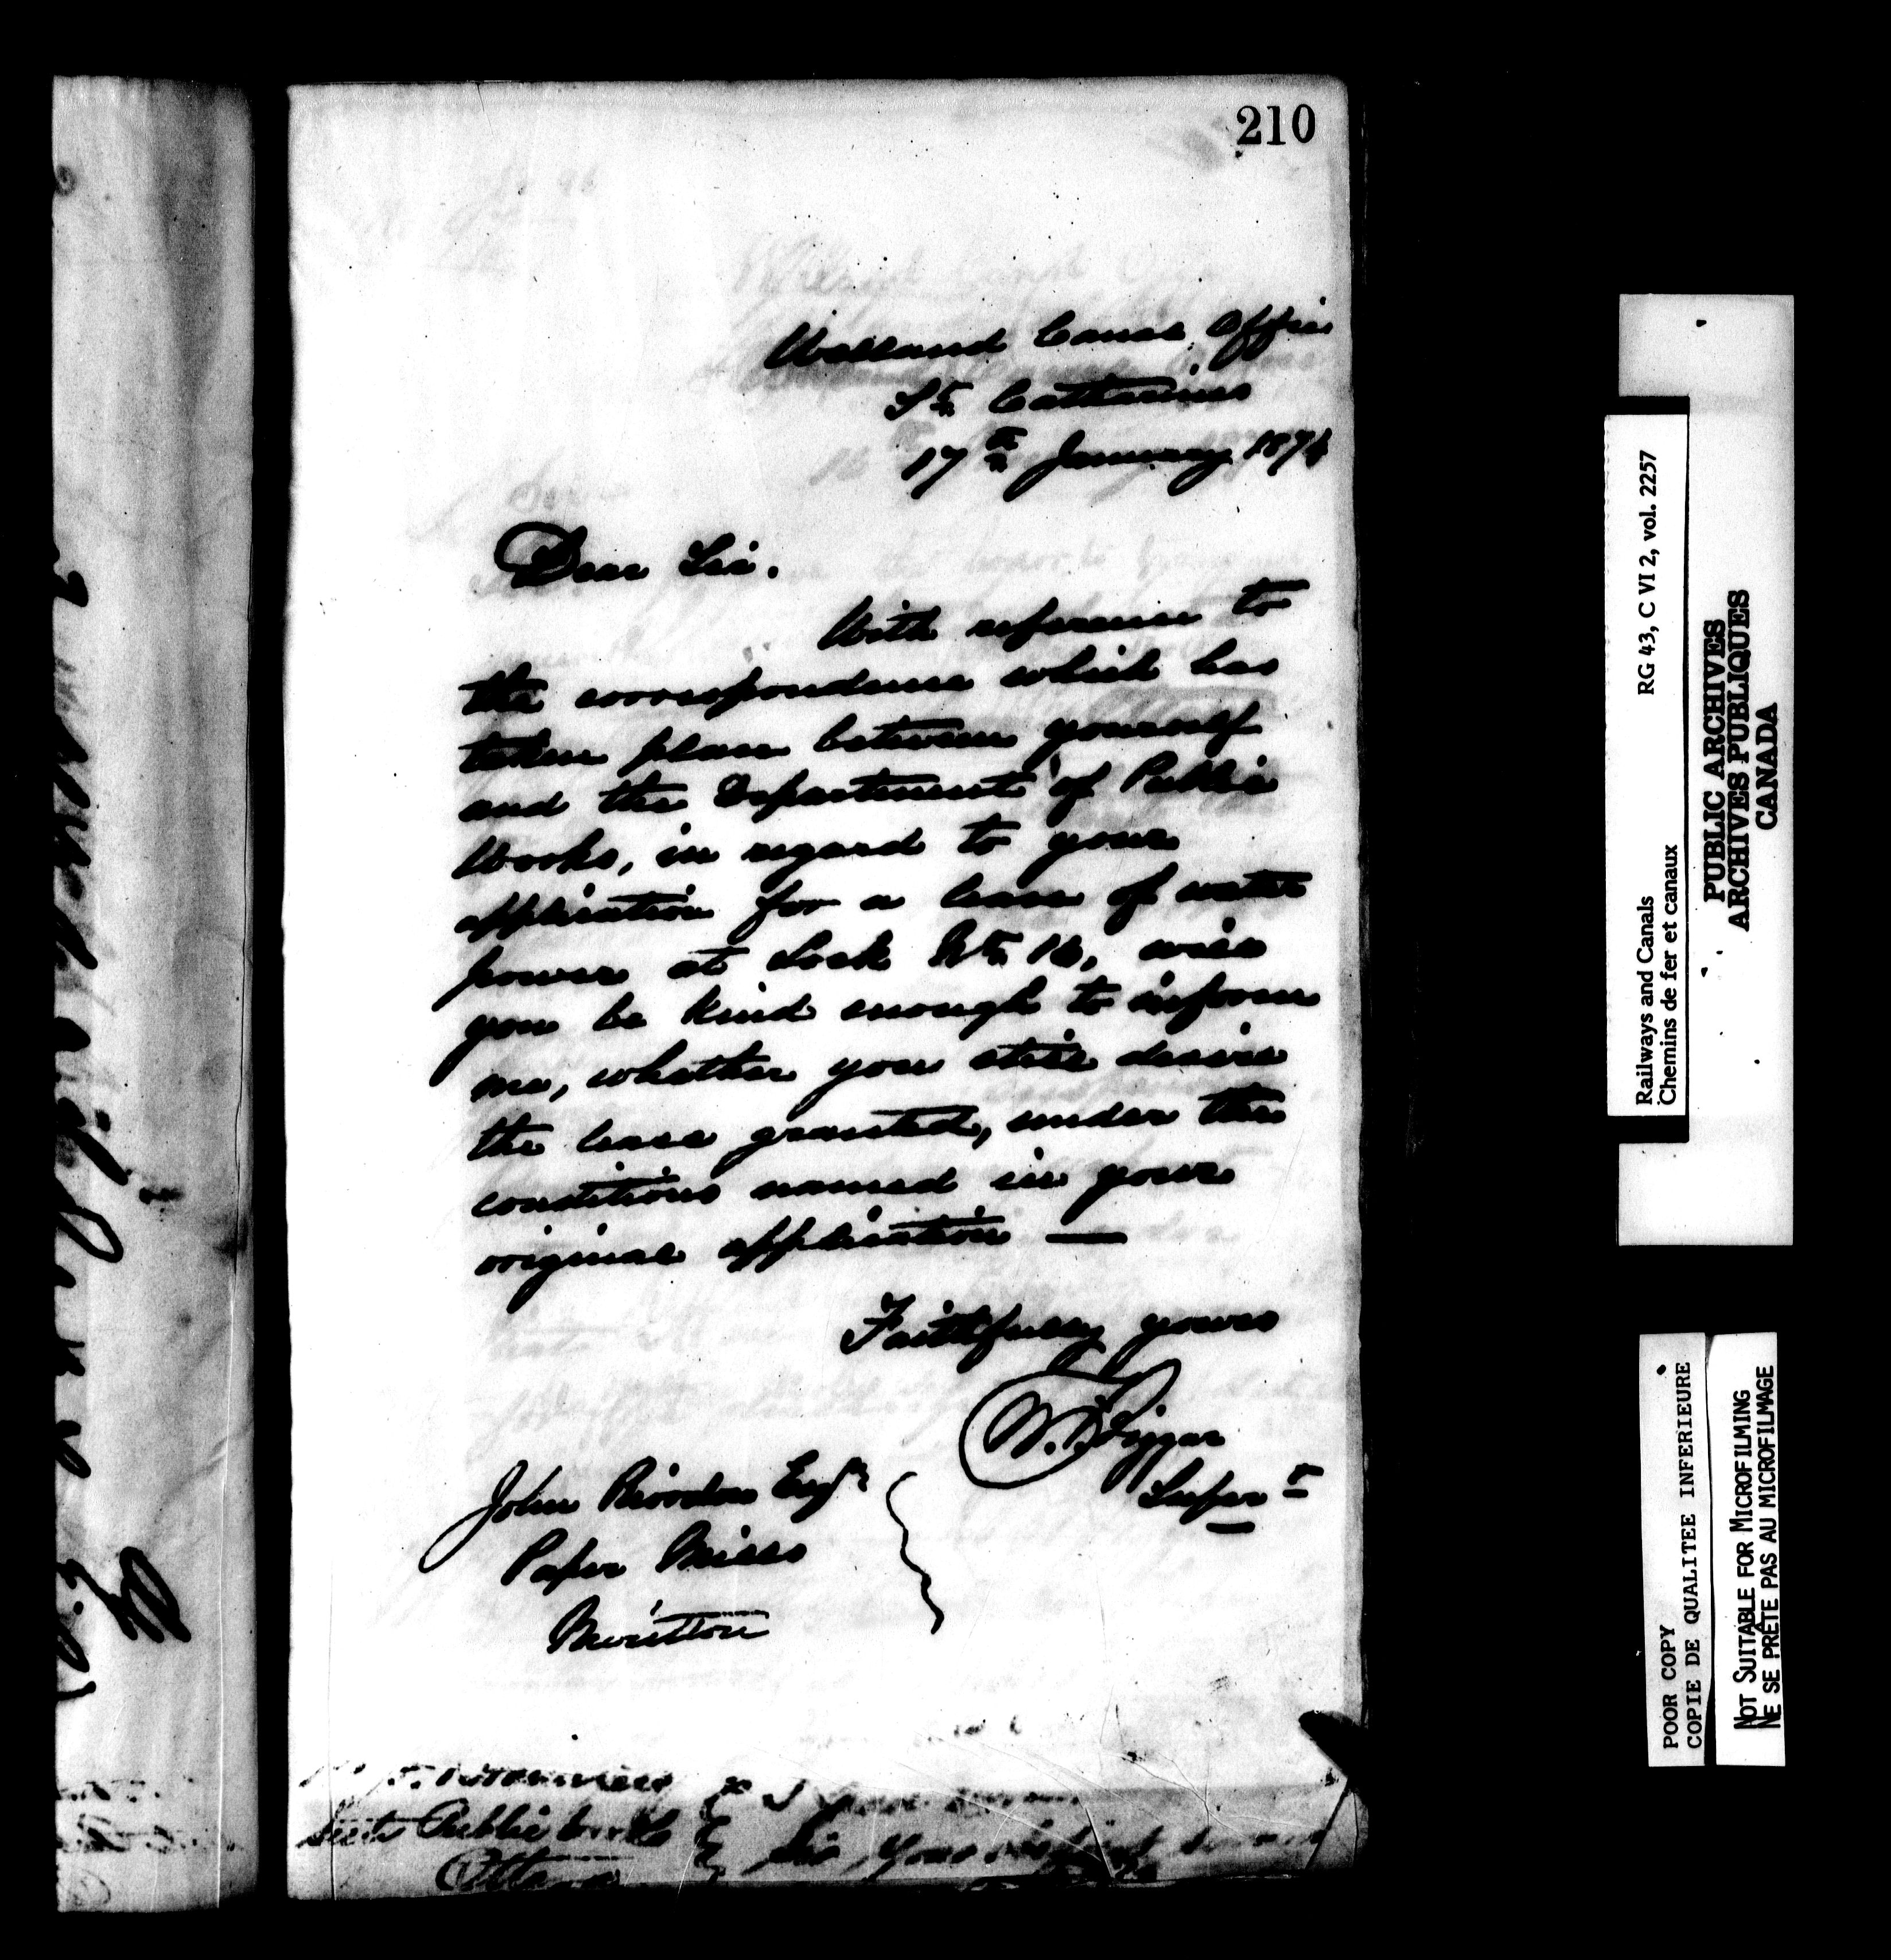 210
Welland Canal Office
St. Catharines
17th January 1874
Dear Sir.
With reference to
the correspondence which has
taken place between yourself
and the Department of Public
Works, in regard to your
application for a lease of water
power at Lock No. 16, will
you be kind enough to inform
me, whether you still desire
the lease granted, under the
conditions named in your
original application —
Faithfully yours
Supt
John Riordon Esqr
Paper Mills
Merritton
Public Works
Ottawa
Sir, your obedient
Railways and Canals RG 43, C VI 2, vol. 2257
Chemins de fer et canaux
PUBLIC ARCHIVES
ARCHIVES PUBLIQUES
CANADA
POOR COPY
COPIE DE QUALITEE INFERIEURE
NOT SUITABLE FOR MICROFILMING
NE SE PRÊTE PAS AU MICROFILMAGE